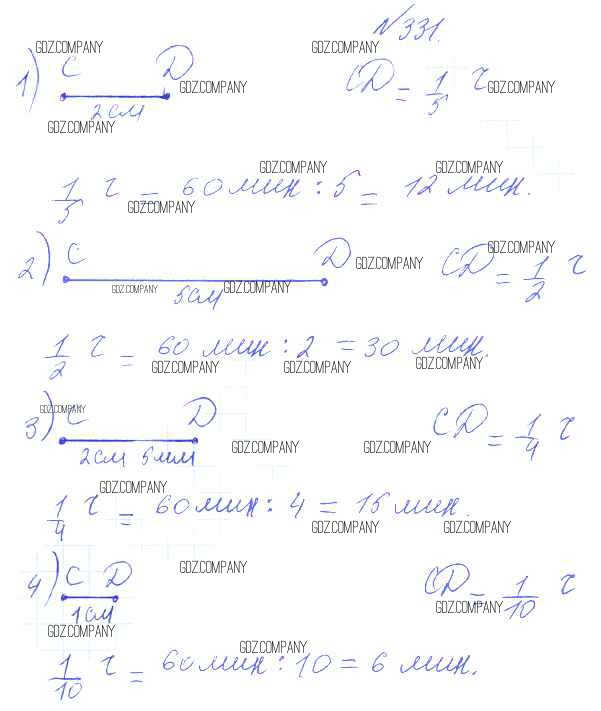 №331.
GDZ.COMPANY GDZ.COMPANY
1) C D CD = 1/5 ч
GDZ.COMPANY GDZ.COMPANY
2 см
GDZ.COMPANY
GDZ.COMPANY GDZ.COMPANY
1/5 ч = 60 мин : 5 = 12 мин.
GDZ.COMPANY
2) C D CD = 1/2 ч
GDZ.COMPANY
GDZ.COMPANY
GDZ.COMPANY GDZ.COMPANY
5 см
1/2 ч = 60 мин : 2 = 30 мин.
GDZ.COMPANY GDZ.COMPANY GDZ.COMPANY
GDZ.COMPANY
3) C D CD = 1/4 ч
GDZ.COMPANY GDZ.COMPANY
2 см 5 мм
GDZ.COMPANY
1/4 ч = 60 мин : 4 = 15 мин.
GDZ.COMPANY GDZ.COMPANY
GDZ.COMPANY
4) C D CD = 1/10 ч
GDZ.COMPANY
1 см
GDZ.COMPANY
GDZ.COMPANY
1/10 ч = 60 мин : 10 = 6 мин.